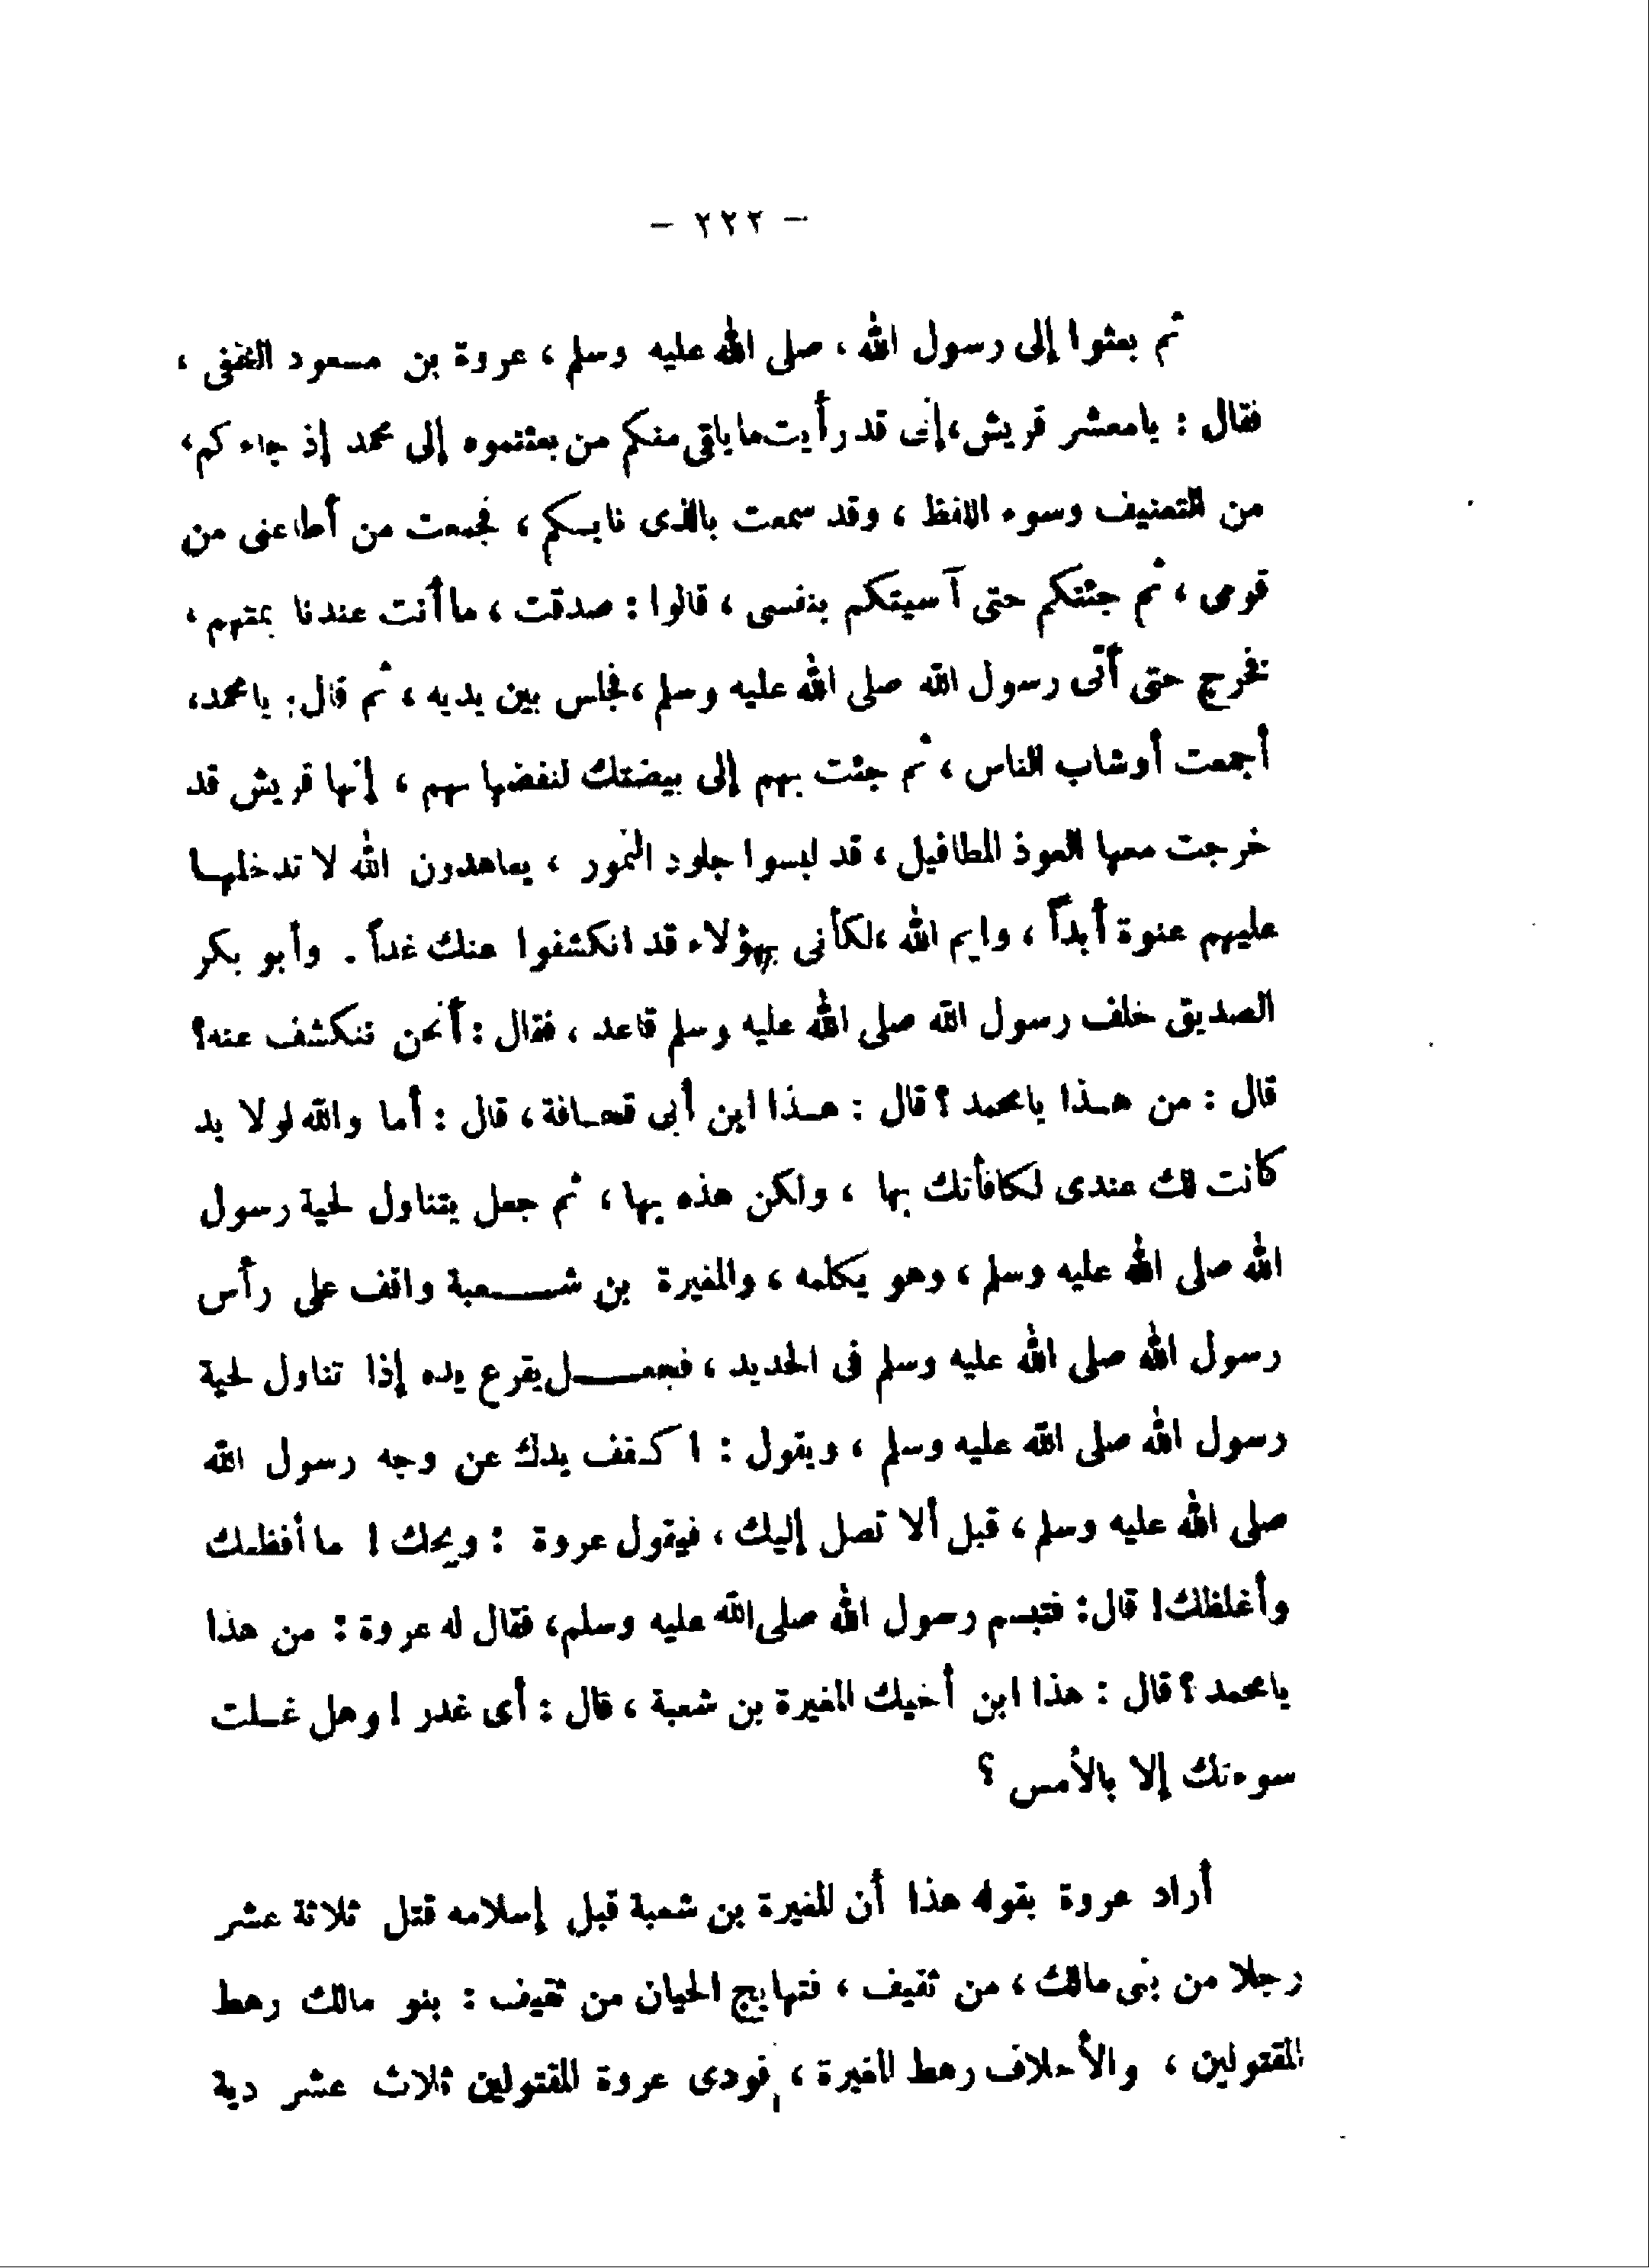 - ٢٢٢ -
ثم بعثوا إلى رسول الله ، صلى الله عليه وسلم ، عروة بن مسعود الثقفى ،
فقال : يا معشر قريش ، إنى قد رأيت ما يلقى منكم من بعثتموه إلى محمد إذ جاءكم ،
من التعنيف وسوء اللفظ ، وقد سمعت بالذى نابكم ، فجمعت من أطاعنى من
قومى ، ثم جئتكم حتى آسيتكم بنفسى ، قالوا : صدقت ، ما أنت عندنا بمتهم ،
فخرج حتى أتى رسول الله صلى الله عليه وسلم ، فجلس بين يديه ، ثم قال : يا محمد ،
أجمعت أوشاب الناس ، ثم جئت بهم إلى بيضتك لتفضها بهم ، إنها قريش قد
خرجت معها العوذ المطافيل ، قد لبسوا جلود النمور ، يعاهدون الله لا تدخلها
عليهم عنوة أبداً ، وايم الله ، لكأنى بهؤلاء قد انكشفوا عنك غداً . وأبو بكر
الصديق خلف رسول الله صلى الله عليه وسلم قاعد ، فقال : أنحن ننكشف عنه ؟
قال : من هذا يا محمد ؟ قال : هذا ابن أبى قحافة ، قال : أما والله لولا يد
كانت لك عندى لكافأتك بها ، ولكن هذه بها ، ثم جعل يتناول لحية رسول
الله صلى الله عليه وسلم ، وهو يكلمه ، والمغيرة بن شعبة واقف على رأس
رسول الله صلى الله عليه وسلم فى الحديد ، فجعل يقرع يده إذا تناول لحية
رسول الله صلى الله عليه وسلم ، ويقول : اكفف يدك عن وجه رسول الله
صلى الله عليه وسلم ، قبل ألا تصل إليك ، فيقول عروة : ويحك ! ما أفظك
وأغلظك ! قال : فتبسم رسول الله صلى الله عليه وسلم ، فقال له عروة : من هذا
يا محمد ؟ قال : هذا ابن أخيك المغيرة بن شعبة ، قال : أى غدر ! وهل غسلت
سوءتك إلا بالأمس ؟
أراد عروة بقوله هذا أن المغيرة بن شعبة قبل إسلامه قتل ثلاثة عشر
رجلا من بنى مالك ، من ثقيف ، فتهايج الحيان من ثقيف : بنو مالك رهط
المقتولين ، والأحلاف رهط المغيرة ، فودى عروة المقتولين ثلاث عشر دية